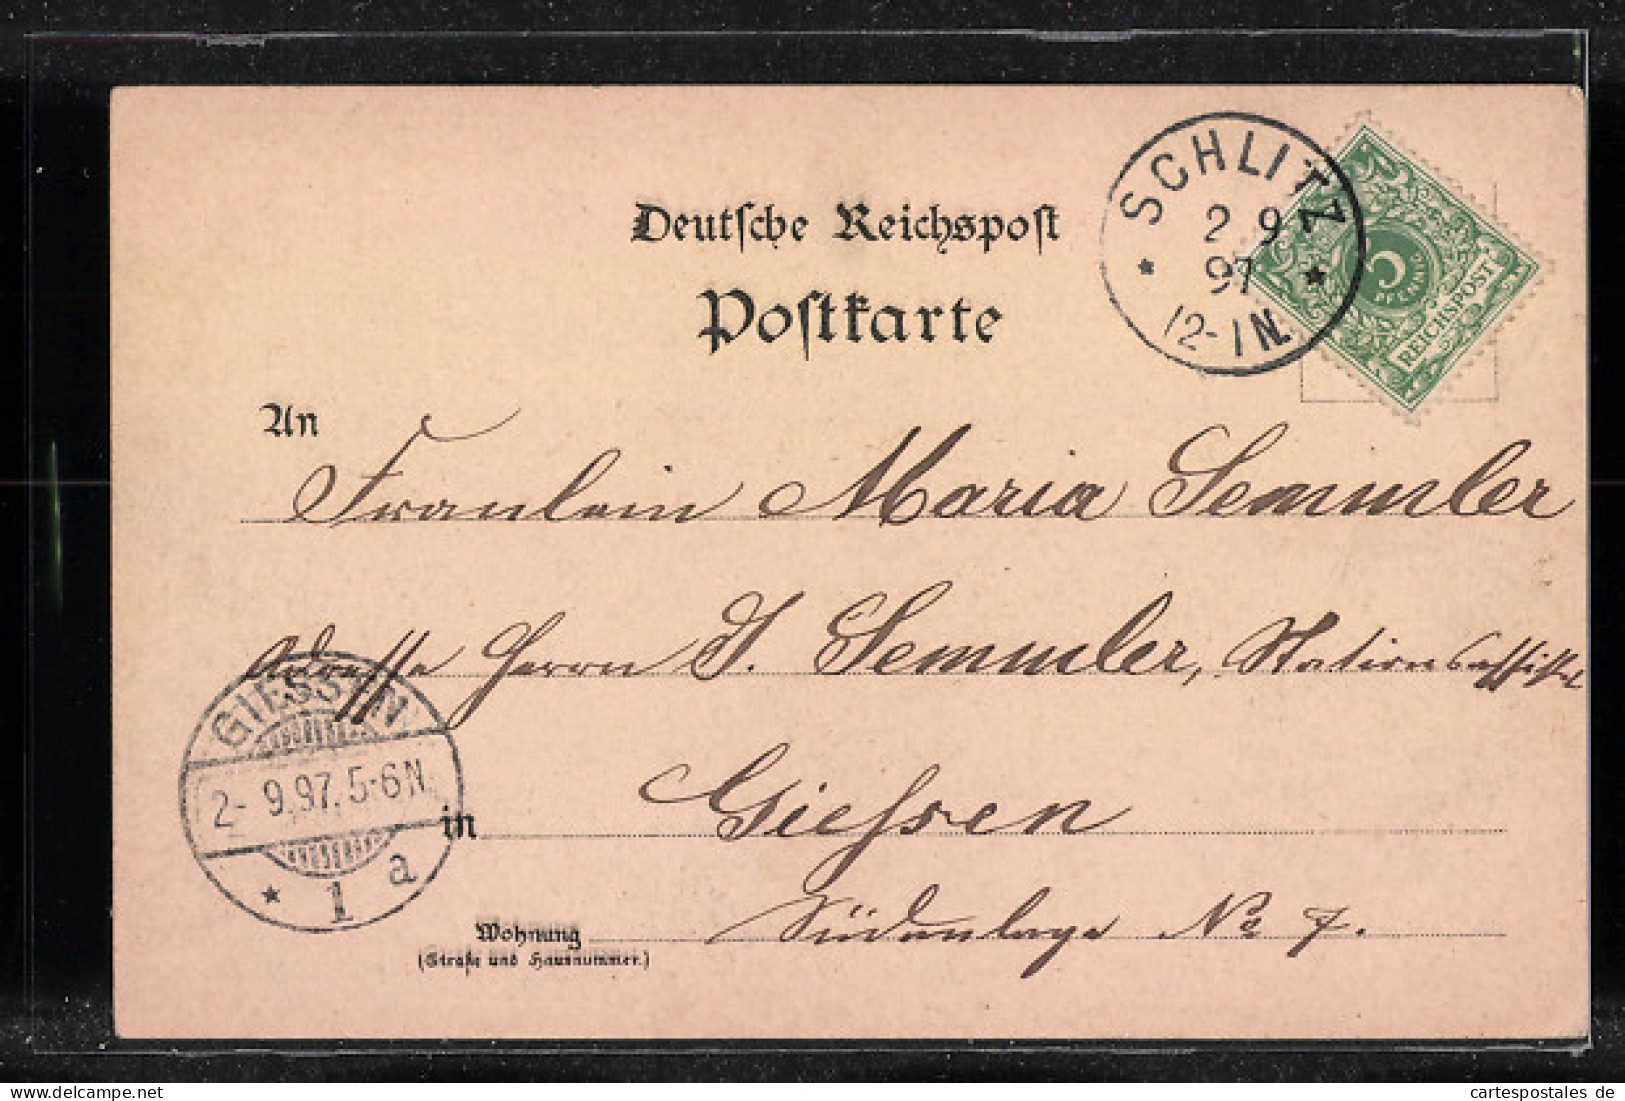 Deutsche Reichspost
Postkarte
SCHLITZ
2 9
97
12-1N.
5
PFENNIG
REICHSPOST
An
Fraulein Maria Semmler
Adresse Herrn J. Semmler, Stationsassistt
GIESSEN
2- 9.97. 5-6N.
1 a
in Giessen
Wohnung Südanlage No 7.
(Straße und Hausnummer.)
Ref.: 2451620
cartespostales ● de